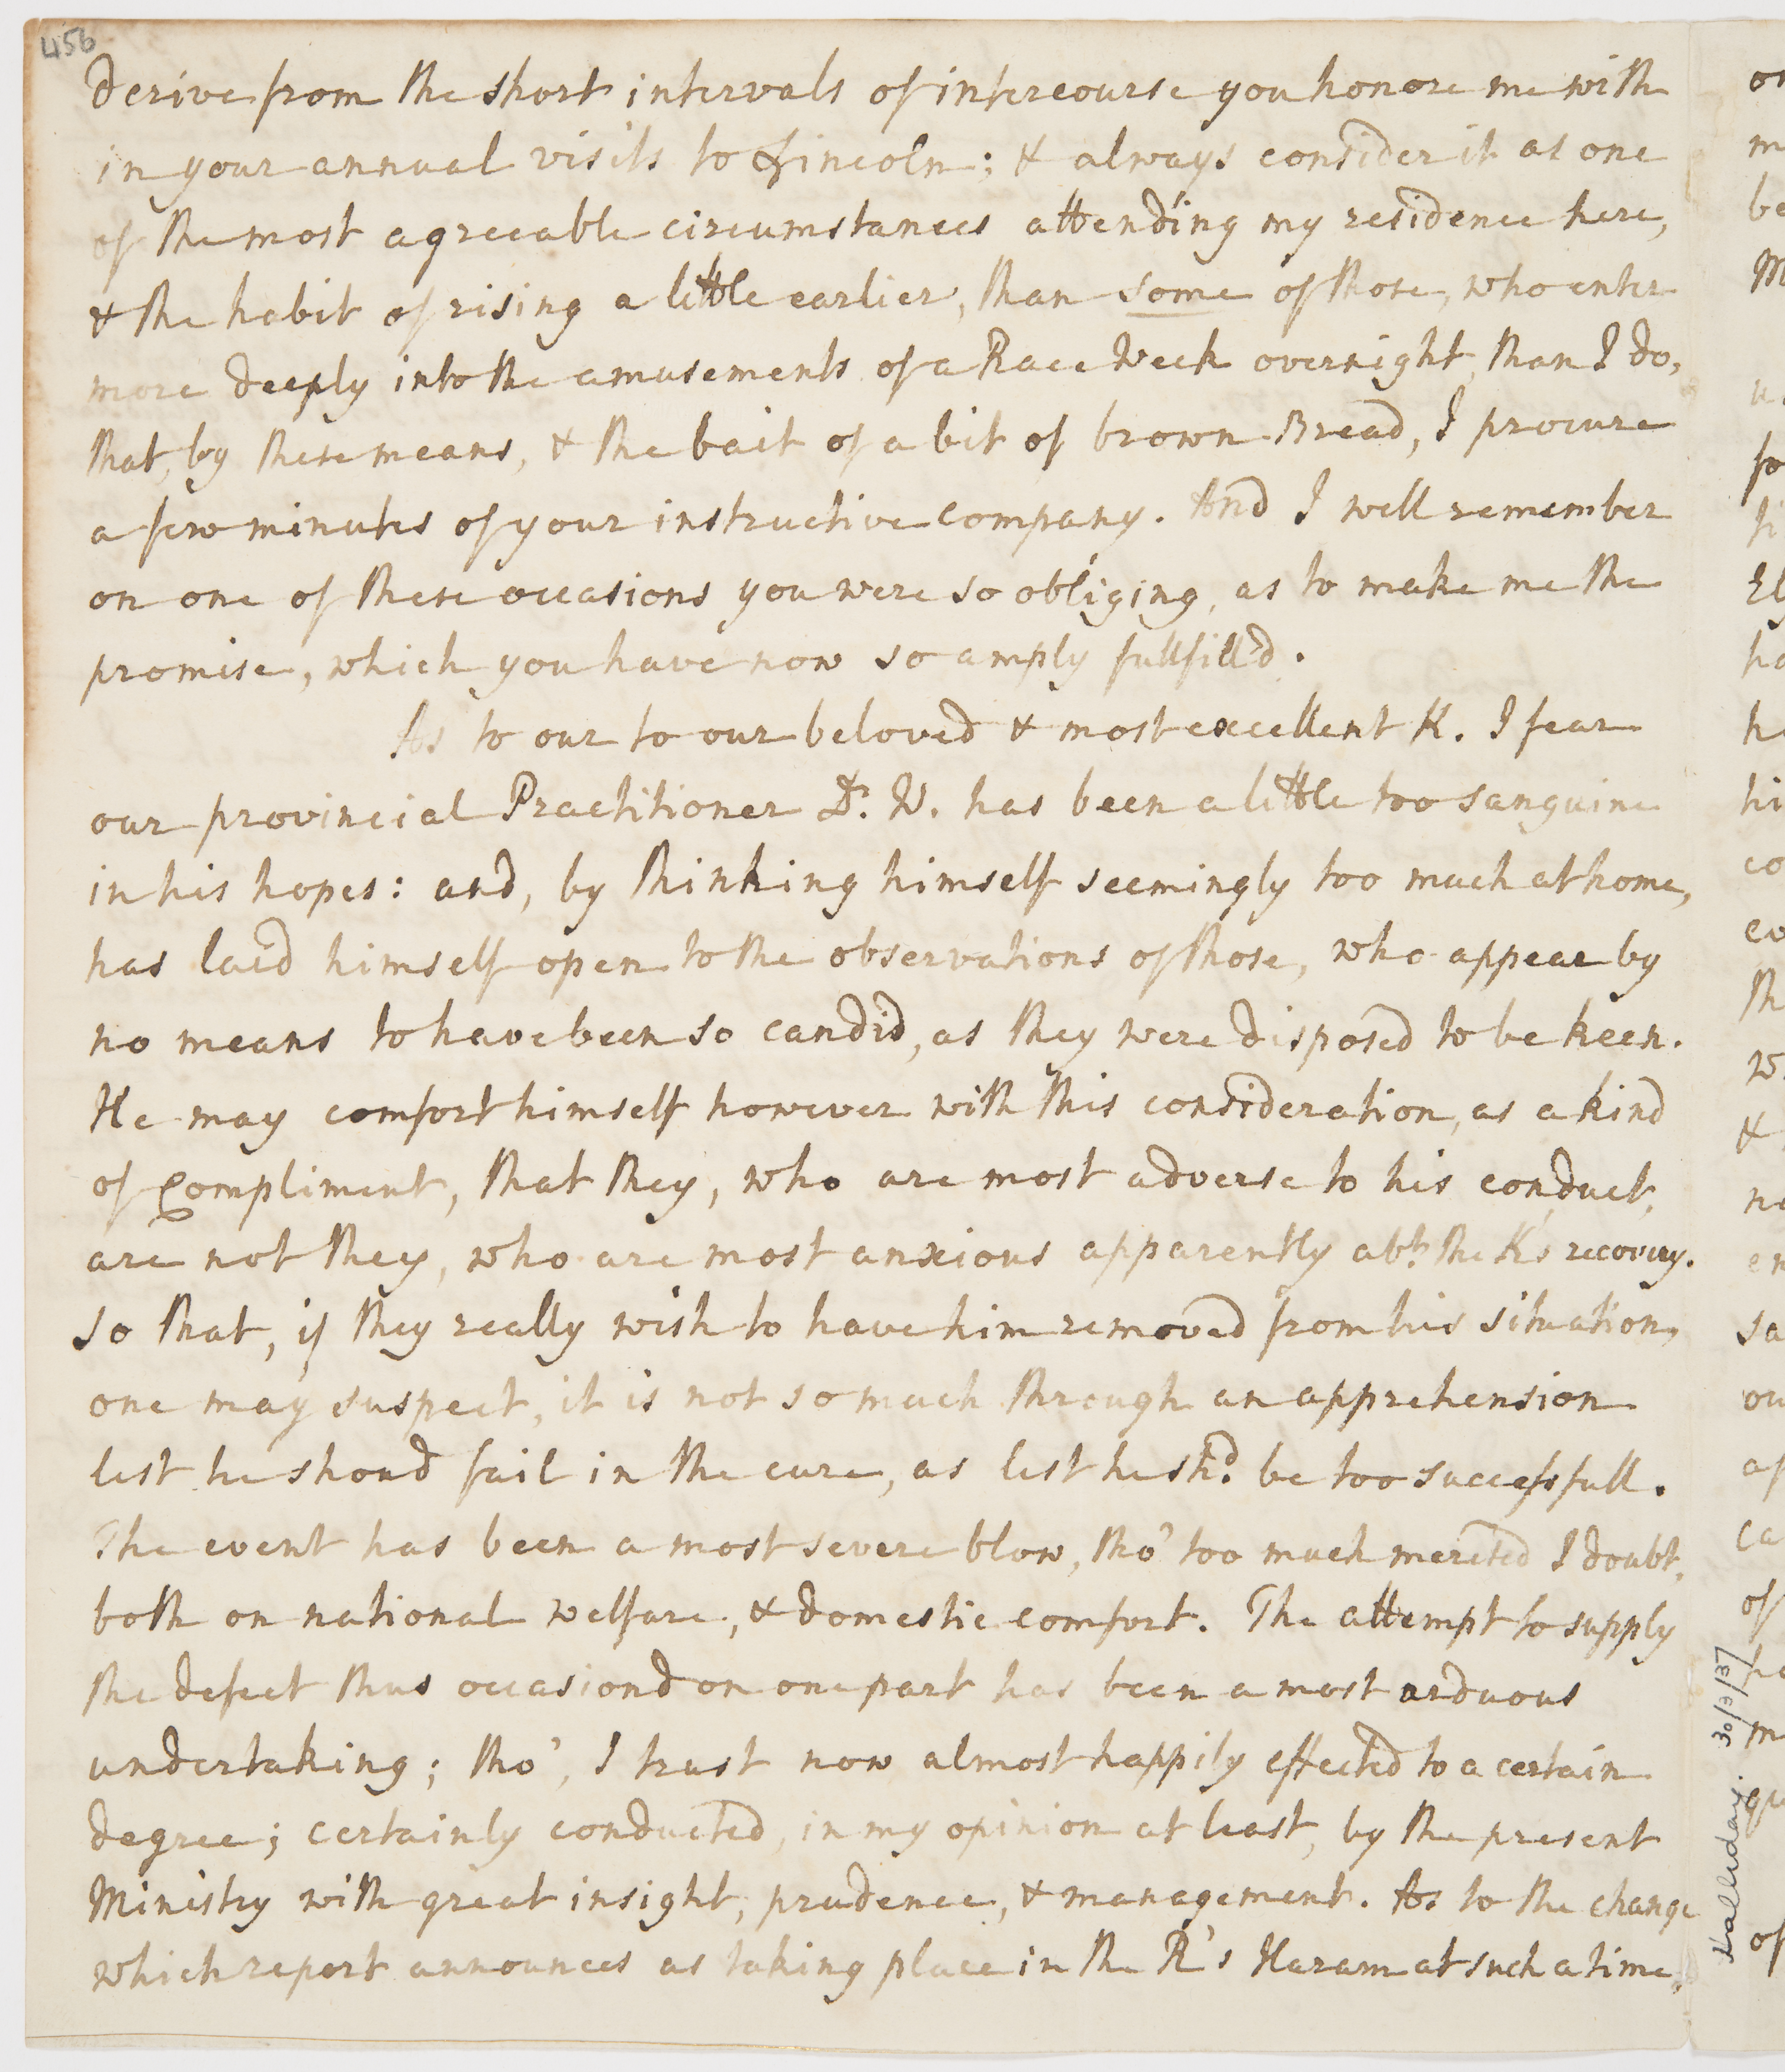 456
derive from the short intervals of intercourse you honore me with
in your annual visits to Lincoln; & always consider it as one
of the most agreeable circumstances attending my residence here,
& the habit of rising a little earlier, than some of those, who enter
more deeply into the amusements of a Race Week overnight, than I do,
that, by these means, & the bait of a bit of brown Bread, I procure
a few minutes of your instructive company. And I well remember
on one of these occasions you were so obliging, as to make me the
promise, which you have now so amply fullfill'd.
As to our to our beloved & most excellent K. I fear
our provincial Practitioner Dr. W. has been a little too sanguine
in his hopes: and, by thinking himself seemingly too much at home,
has laid himself open to the observations of those, who appear by
no means to have been so candid, as they were disposed to be keen.
He may comfort himself however with this consideration, as a kind
of Compliment, that they, who are most adverse to his conduct,
are not they, who are most anxious apparently abt. the K's recovery.
so that, if they really wish to have him removed from his situation,
one may suspect, it is not so much through an apprehension
lest he shoud fail in the cure, as lest he shd. be too successfull.
The event has been a most severe blow, tho' too much merited I doubt,
both on national welfare, & domestic comfort. The attempt to supply
the defect thus occasiond on one part has been a most arduous
undertaking; tho', I trust now almost happily effected to a certain
degree; certainly conducted, in my opinion at least, by the present
Ministry with great insight, prudence, & management. As to the change
which report announces as taking place in the R's Haram at such a time,
Halliday. 30/3/37